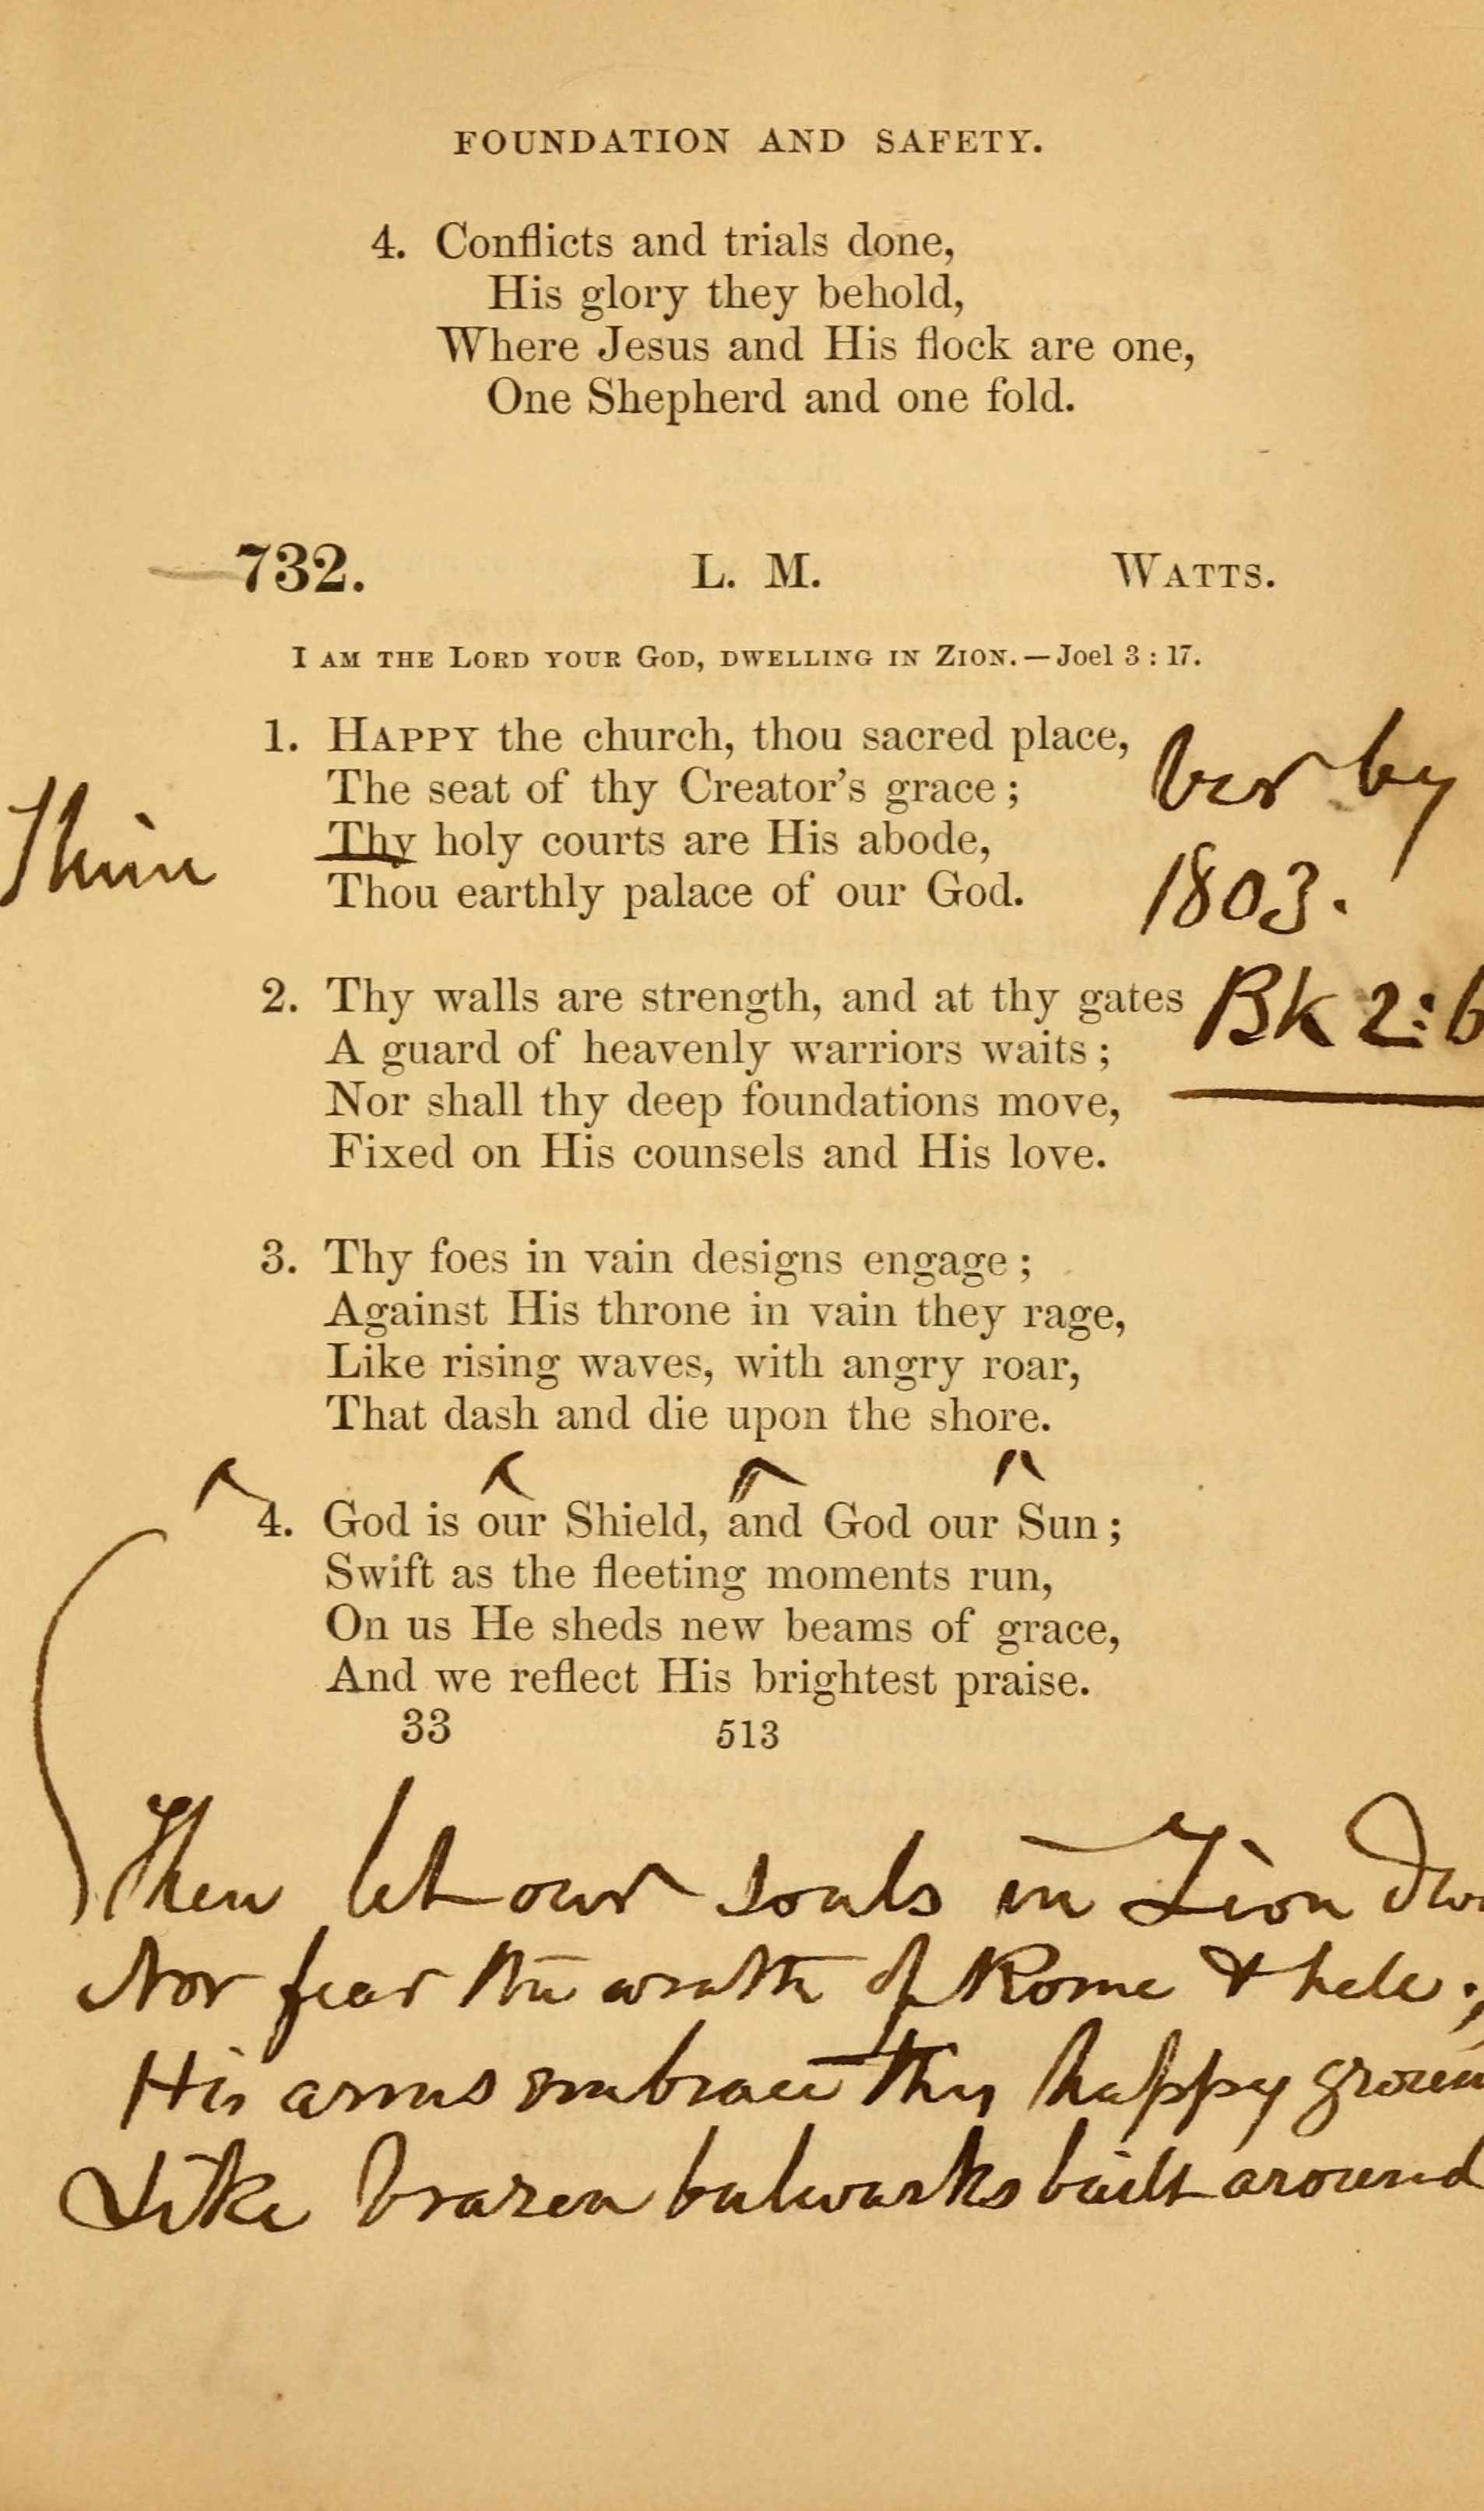 FOUNDATION AND SAFETY.
4. Conflicts and trials done,
His glory they behold,
Where Jesus and His flock are one,
One Shepherd and one fold.
732. L. M. WATTS.
I AM THE LORD YOUR GOD, DWELLING IN ZION.—Joel 3 : 17.
1. HAPPY the church, thou sacred place,
The seat of thy Creator's grace ;
Thy holy courts are His abode,
Thou earthly palace of our God.
by
1803.
2. Thy walls are strength, and at thy gates
Bk 2: 6
A guard of heavenly warriors waits ;
Nor shall thy deep foundations move,
Fixed on His counsels and His love.
3. Thy foes in vain designs engage ;
Against His throne in vain they rage,
Like rising waves, with angry roar,
That dash and die upon the shore.
4. God is our Shield, and God our Sun ;
Swift as the fleeting moments run,
On us He sheds new beams of grace,
And we reflect His brightest praise.
33 513
Then let our souls in Zion dwe
Nor fear the wrath of Rome & hell ;
His arms embrace this happy groun
Like brazen bulwarks built around